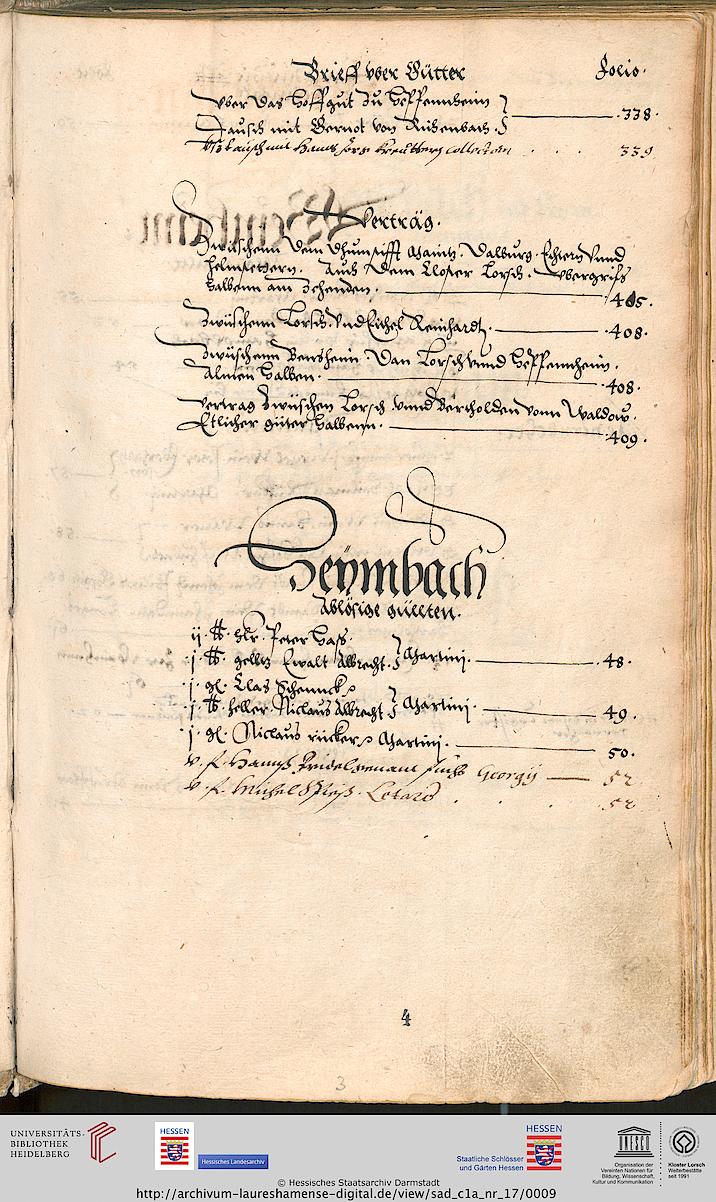 Brieff vber Gütter Folio.
Vber das Hoffgut zu Heppennheim
Tausch mit Gernot von Rihenbach. 338.
hans 339
Verträg.
Zwüschenn dem Thumstifft Maintz, Dalburg,
Auch dem Closter Lorsch. Vbergriffs
halbenn am zehenden. 405.
Zwüschenn Lorsch. vnd Eichel Reinhardt. 408.
Zwüschenn Bensheim. Dan Lorsch vnnd Heppennheim.
Almen halben. 408.
Vertrag Zwüschen Lorsch vnnd Bercholden vonn Waldow.
Etlicher güter halbenn. 409.
Seÿmbach
Ablösige güllten.
ij. Peter Haß.
j. Ewalt Albrecht. Martinj. 48.
j. gl. Clas Schenck
j. heller Niclaus Albrecht Martinj. 49.
j. gl. Niclaus rücker Martinj. 50.
v. f. Hanns Georgij 52
v. f. Michel 52
4
3
UNIVERSITÄTS-
BIBLIOTHEK
HEIDELBERG
HESSEN
Hessisches Landesarchiv
HESSEN
Staatliche Schlösser
und Gärten Hessen
UNESCO
Organisation der
Vereinten Nationen für
Bildung, Wissenschaft,
Kultur und Kommunikation
Kloster Lorsch
Welterbestätte
seit 1991
© Hessisches Staatsarchiv Darmstadt
http://archivum-laureshamense-digital.de/view/sad_c1a_nr_17/0009